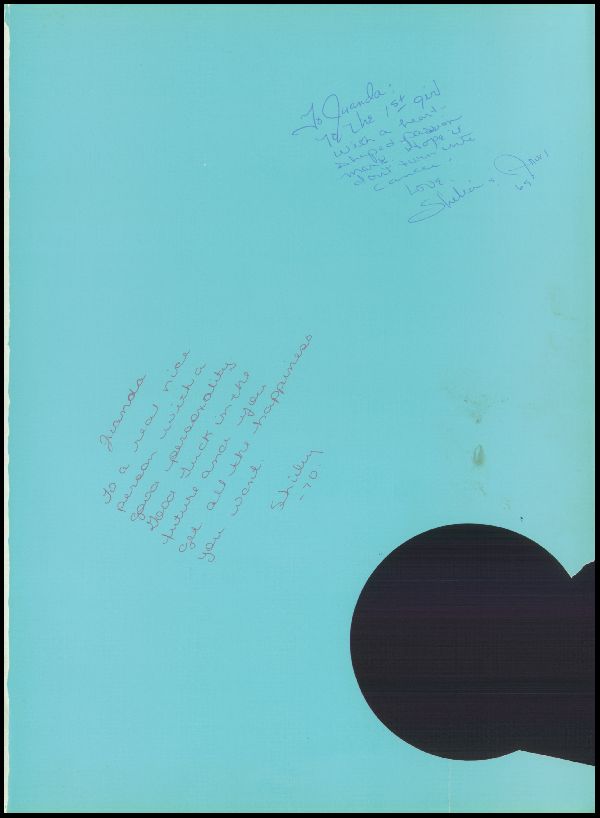 To Juanda:
To The 1st girl
with a heart-
shaped passion
mark. Hope it
don't turn into
cancer.
Love.
Shelia
69.
Juanda
To a real nice
person with a
good personality
Good luck in the
future and you
get all the happiness
you want.
Shirley
-70.